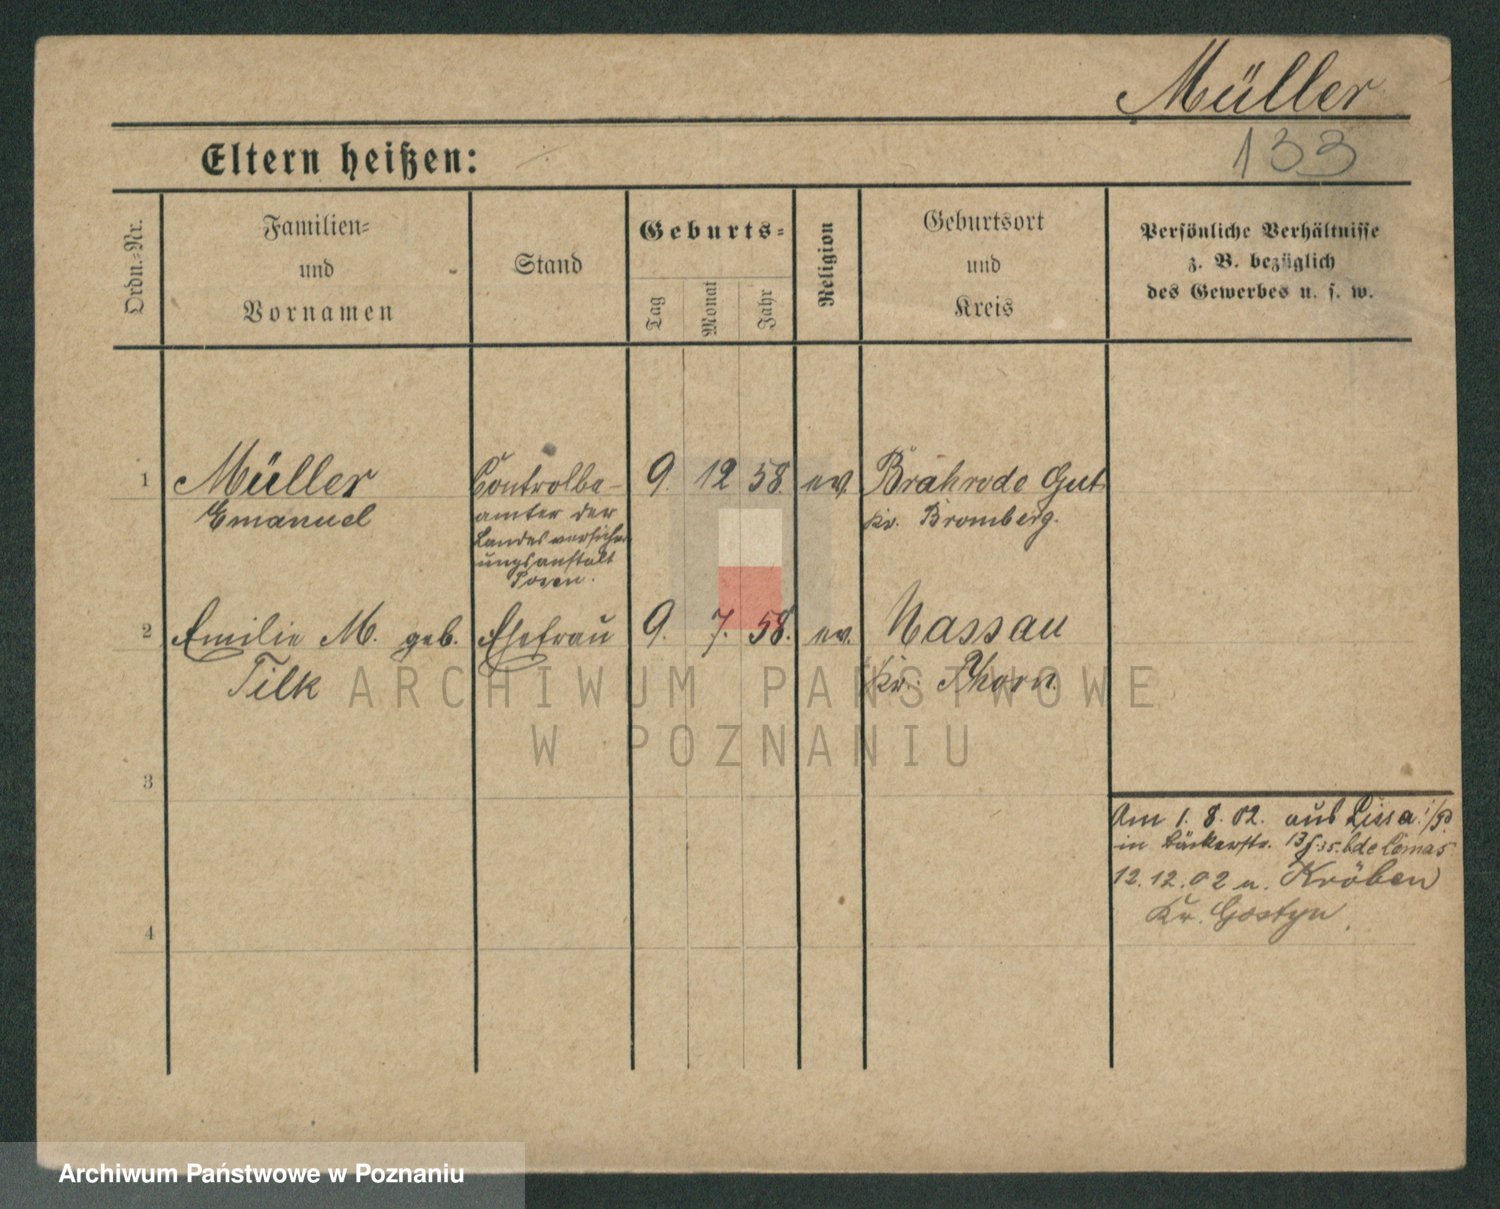 Müller
133
Eltern heißen:
Ordn.-Nr.
Familien-
und
Vornamen
Stand
Geburts-
Tag
Monat
Jahr
Religion
Geburtsort
und
Kreis
Persönliche Verhältnisse
z. B. bezüglich
des Gewerbes u. s. w.
1 Müller Controlbe- 9. 12 58. ev. Brahrode Gut
Emanuel amter der Kr. Bromberg.
Landesversicher
ungsanstalt
Posen.
2 Emilie M. geb. Ehefrau 9. 7. 58. ev. Nassau
Tilk Kr. Thorn.
ARCHIWUM PAŃSTWOWE
W POZNANIU
3
Am 1. 8. 02. aus Lissa i/P
in Bäckerstr. 13
12.12.02 n. Kröben
Kr. Gostyn.
4
Archiwum Państwowe w Poznaniu